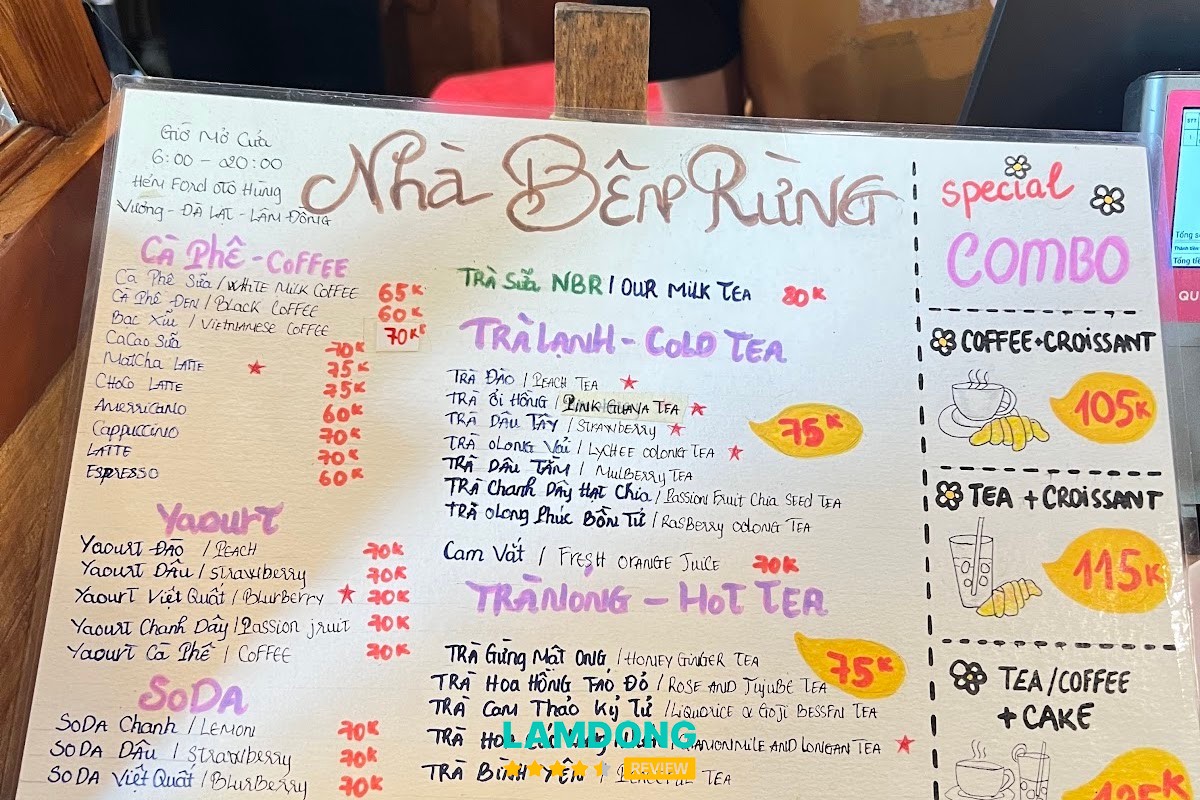 Giờ Mở Cửa
6:00 - 20:00
Hẻm Ford Oto Hùng
Vương - ĐÀ LẠT - LÂM ĐỒNG
Nhà BÊN RỪNG
CÀ PHÊ - COFFEE
Cà Phê Sữa / WHITE MILK COFFEE 65K
Cà Phê ĐEN / BLACK COFFEE 60K
Bạc Xỉu / VIETNAMESE COFFEE 70K
CaCao Sữa 70K
MatCha LATTE ★ 75K
CHOCO LATTE 75K
Americano 60K
Cappuccino 70K
LATTE 70K
ESPRESSO 60K
Yaourt
Yaourt ĐÀO / PEACH 70K
Yaourt DÂU / Strawberry 70K
Yaourt Việt Quất / BlurBerry ★ 70K
Yaourt Chanh Dây / Passion fruit 70K
Yaourt Cà Phê / COFFEE 70K
SODA
SODA Chanh / LEMON 70K
SODA DÂU / Strawberry 70K
SODA Việt Quất / BlurBerry 70K
TRÀ Sữa NBR / OUR MILK TEA 80K
TRÀ LẠNH - COLD TEA
TRÀ ĐÀO / PEACH TEA ★
TRÀ ỔI HỒNG / PINK GUAVA TEA ★
TRÀ DÂU TÂY / STRAWBERRY ★
TRÀ OLONG VẢI / LYCHEE OOLONG TEA ★
TRÀ DÂU TẰM / MULBERRY TEA
TRÀ Chanh Dây Hạt Chia / Passion Fruit Chia SEED TEA
TRÀ OLong Phúc Bồn Tử / RASBERRY OOLONG TEA
75K
Cam Vắt / FRESH ORANGE JUICE 70K
TRÀ NÓNG - HOT TEA
TRÀ Gừng Mật Ong / HONEY GINGER TEA
TRÀ HOA HỒNG TÁO ĐỎ / ROSE AND JUJUBE TEA
TRÀ Cam Thảo Kỷ Tử / LIQUORICE & GOJI BESSFN TEA
TRÀ HOA / CHAMOMMILE AND LONGAN TEA ★
TRÀ BÌNH YÊN / PEACEFUL TEA
75K
special
COMBO
COFFEE + CROISSANT
105K
TEA + CROISSANT
115K
TEA/COFFEE
+ CAKE
LAMDONG
REVIEW
Tổng
Thành tiền
Tổng tiề
QU